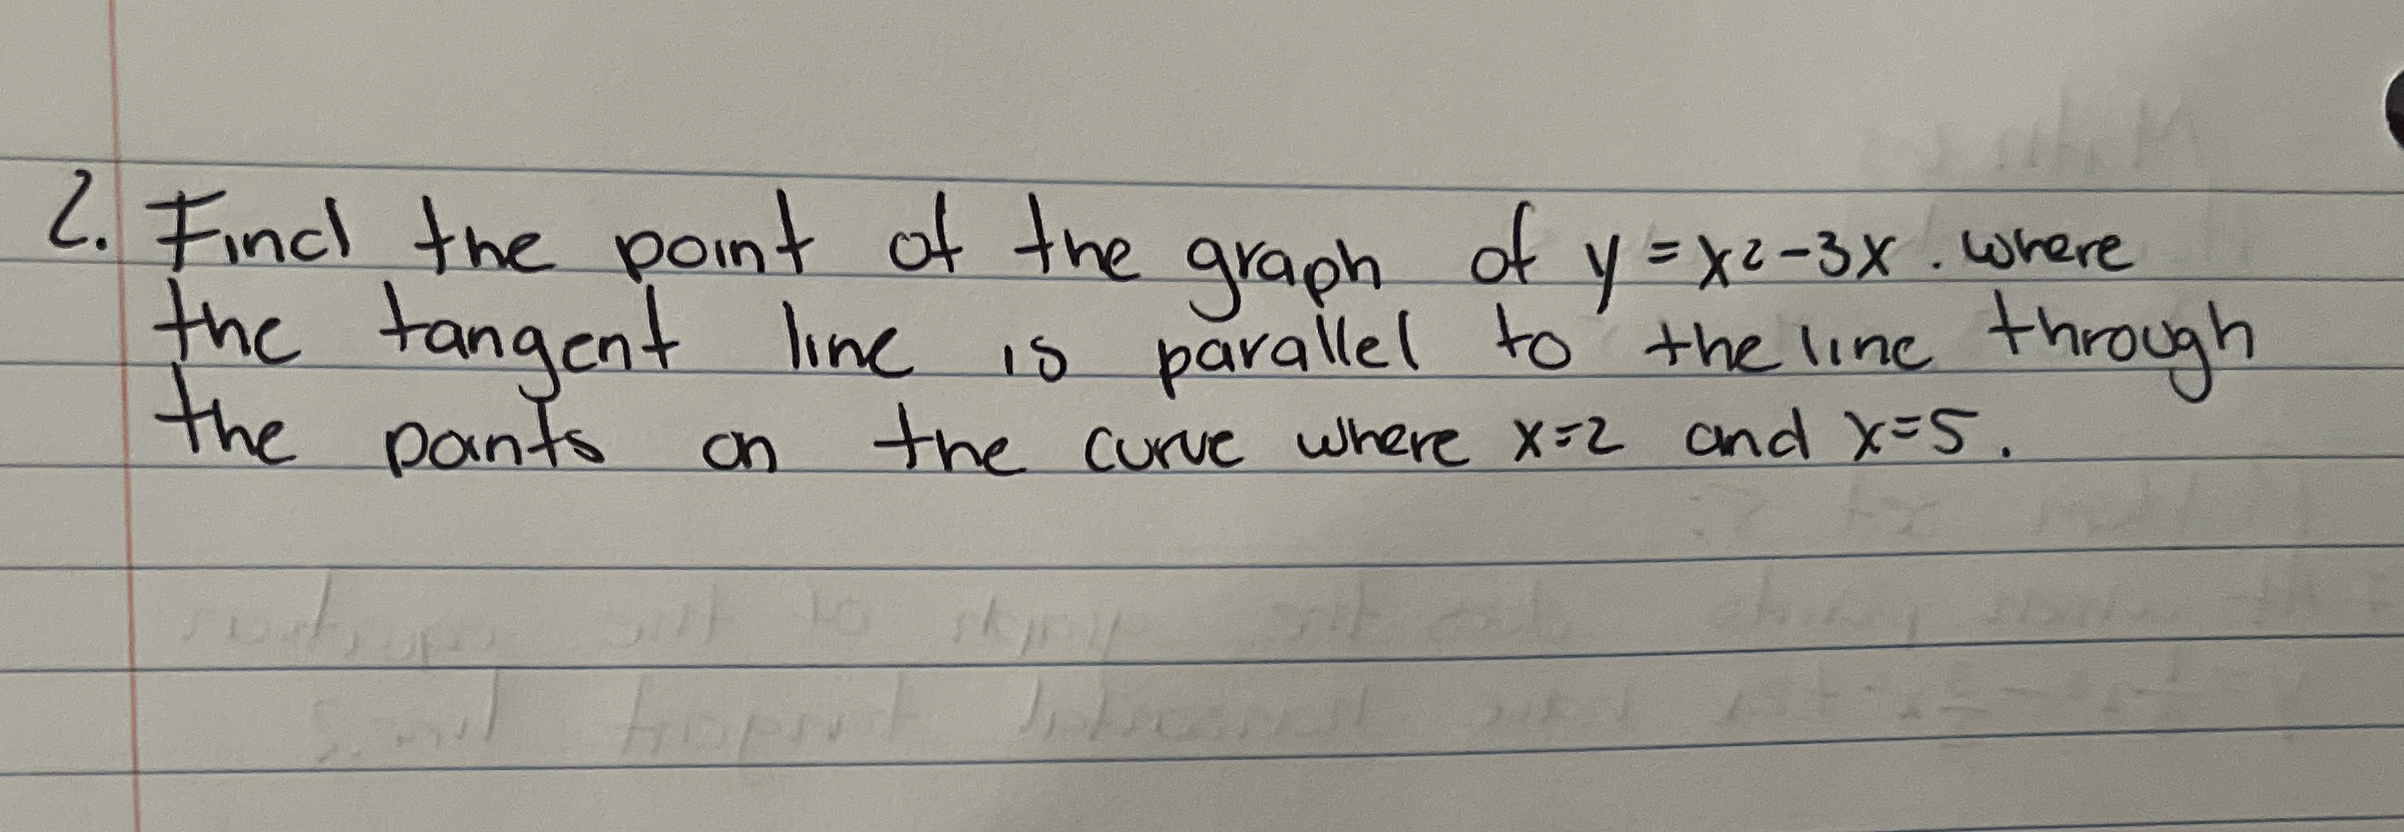 2. Find the point of the graph of y = x² - 3x. where
the tangent line is parallel to the line through
the points on the curve where x=2 and x=5.